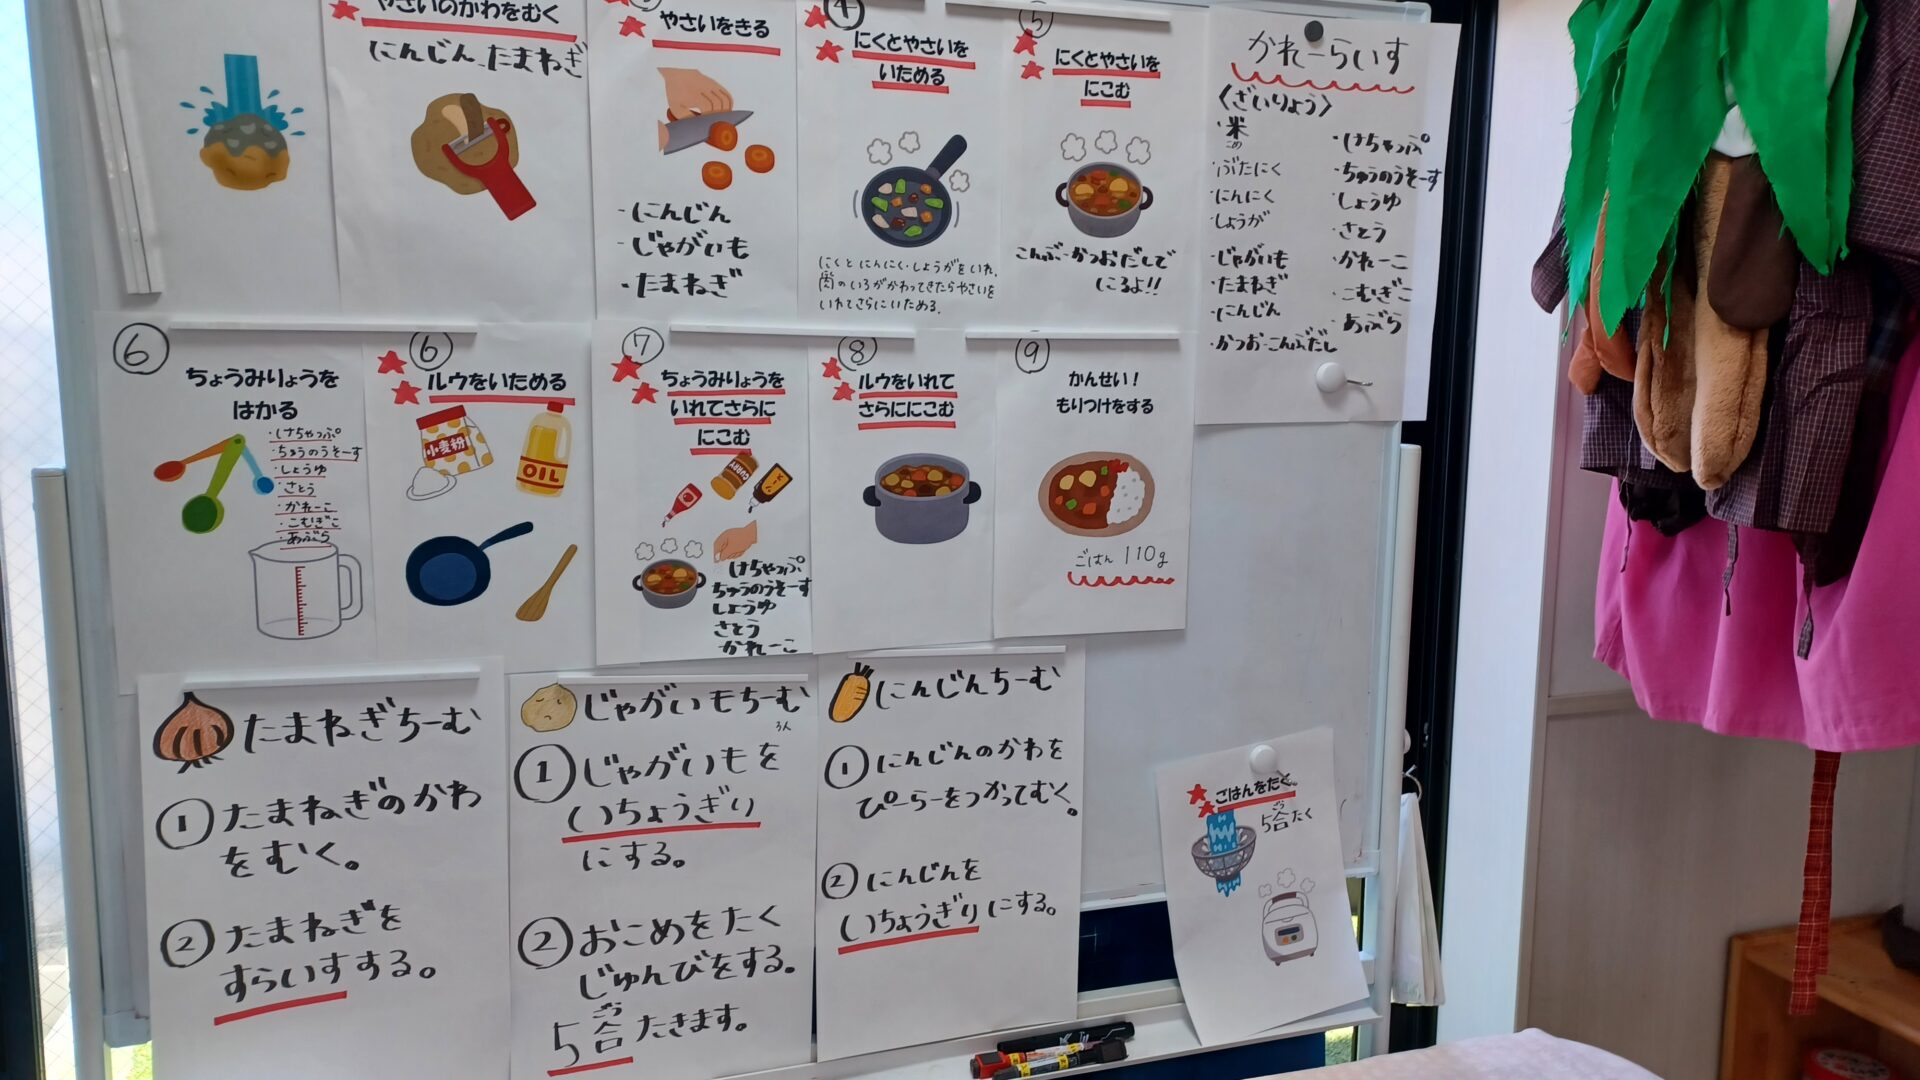 やさいのかわをむく
にんじん、たまねぎ
やさいをきる
・にんじん
・じゃがいも
・たまねぎ
④
にくとやさいを
いためる
にくとにんにく・しょうがをいれ、
のいろがかわってきたらやさいを
いれてさらにいためる。
⑤
にくとやさいを
にこむ
こんぶ・かつおだしで
にるよ!!
かれーらいす
〈ざいりょう〉
・米
こめ
・ぶたにく
・にんにく
・しょうが
・じゃがいも
・たまねぎ
・にんじん
・かつお・こんぶだし
・けちゃっぷ
・ちゅうのうそーす
・しょうゆ
・さとう
・かれーこ
・こむぎこ
・あぶら
⑥
ちょうみりょうを
はかる
・けちゃっぷ
・ちゅうのうそーす
・しょうゆ
・さとう
・かれーこ
・こむぎこ
・あぶら
⑥
ルウをいためる
小麦粉
OIL
⑦
ちょうみりょうを
いれてさらに
にこむ
CURRY
けちゃっぷ
ちゅうのうそーす
しょうゆ
さとう
かれーこ
⑧
ルウをいれて
さらににこむ
⑨
かんせい！
もりつけをする
ごはん 110g
たまねぎちーむ
①たまねぎのかわ
をむく。
②たまねぎを
すらいすする。
じゃがいもちーむ
①じゃがいもを
いちょうぎり
にする。
②おこめをたく
じゅんびをする。
ごう
5合たきます。
にんじんちーむ
①にんじんのかわを
ぴーらーをつかってむく。
②にんじんを
いちょうぎりにする。
ごはんをたく。
ごう
5合たく